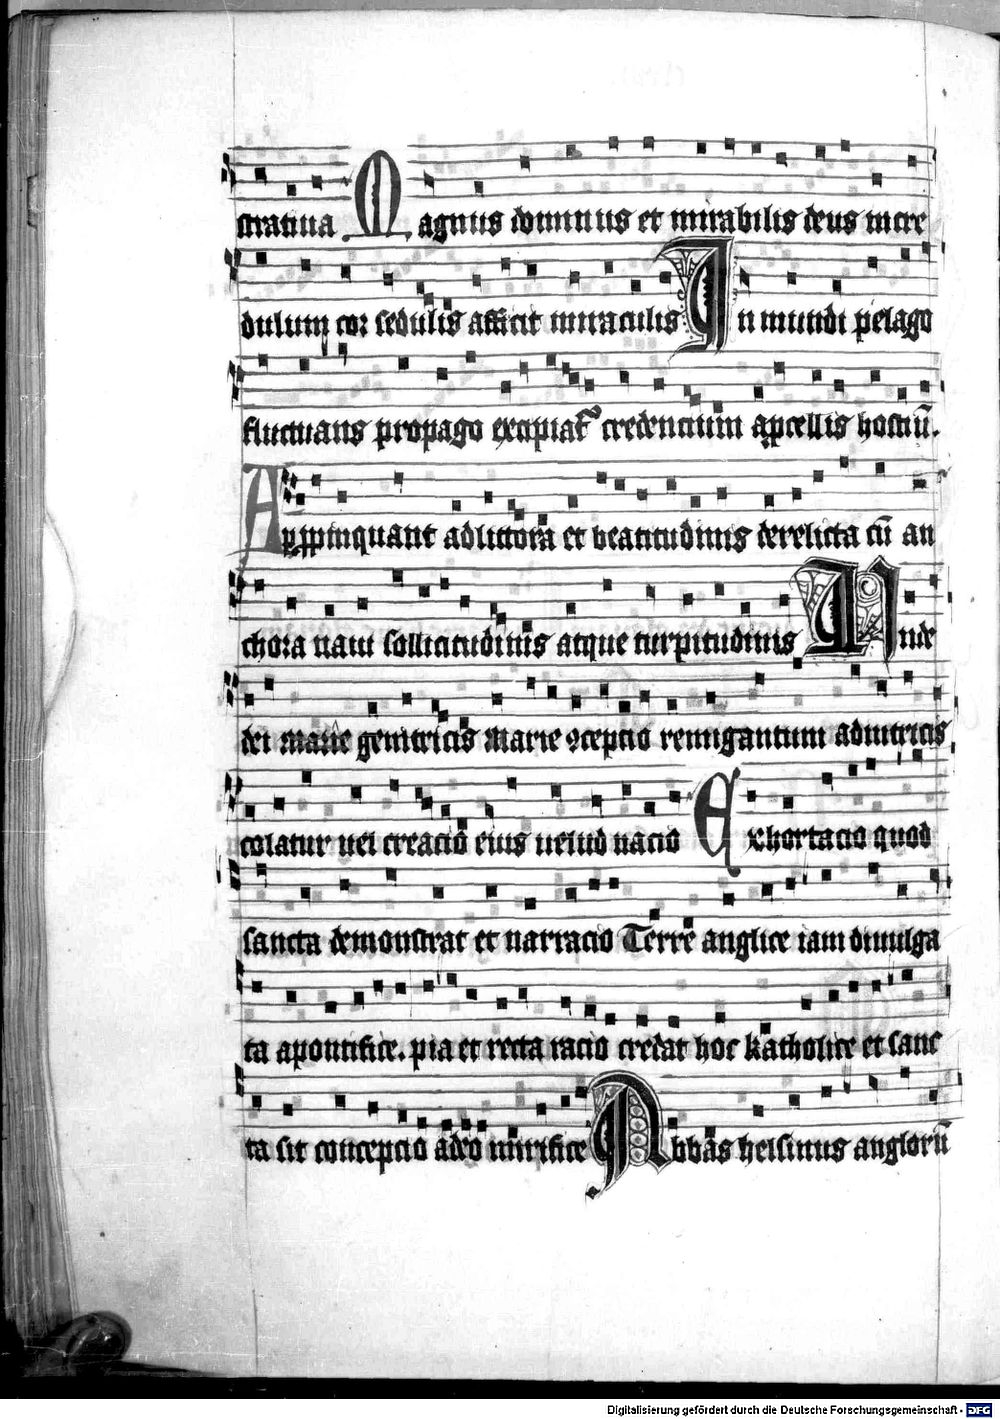 stratiua Magnus dominus et mirabilis deus incre
dulum cor sedulis afficit miraculis In mundi pelago
fluctuans propago excipiat᷑ credencium apcellis hostiū.
Appropinquant ad littora et beatitudinis derelicta cū an
chora naui sollicitudinis atque turpitudinis Unde
dei marie genitricis Marie ꝯcepcio remigantum adiutricis
colatur uel creacio eius uelud nacio Exhortacio quod
sancta demonstrat et narracio Terre anglice iam diuulga
ta a pontifice. pia et recta racio credat hoc katholice et sanc
ta sit concepcio adeo mirifice Abbas helsinus anglorū
Digitalisierung gefördert durch die Deutsche Forschungsgemeinschaft - DFG